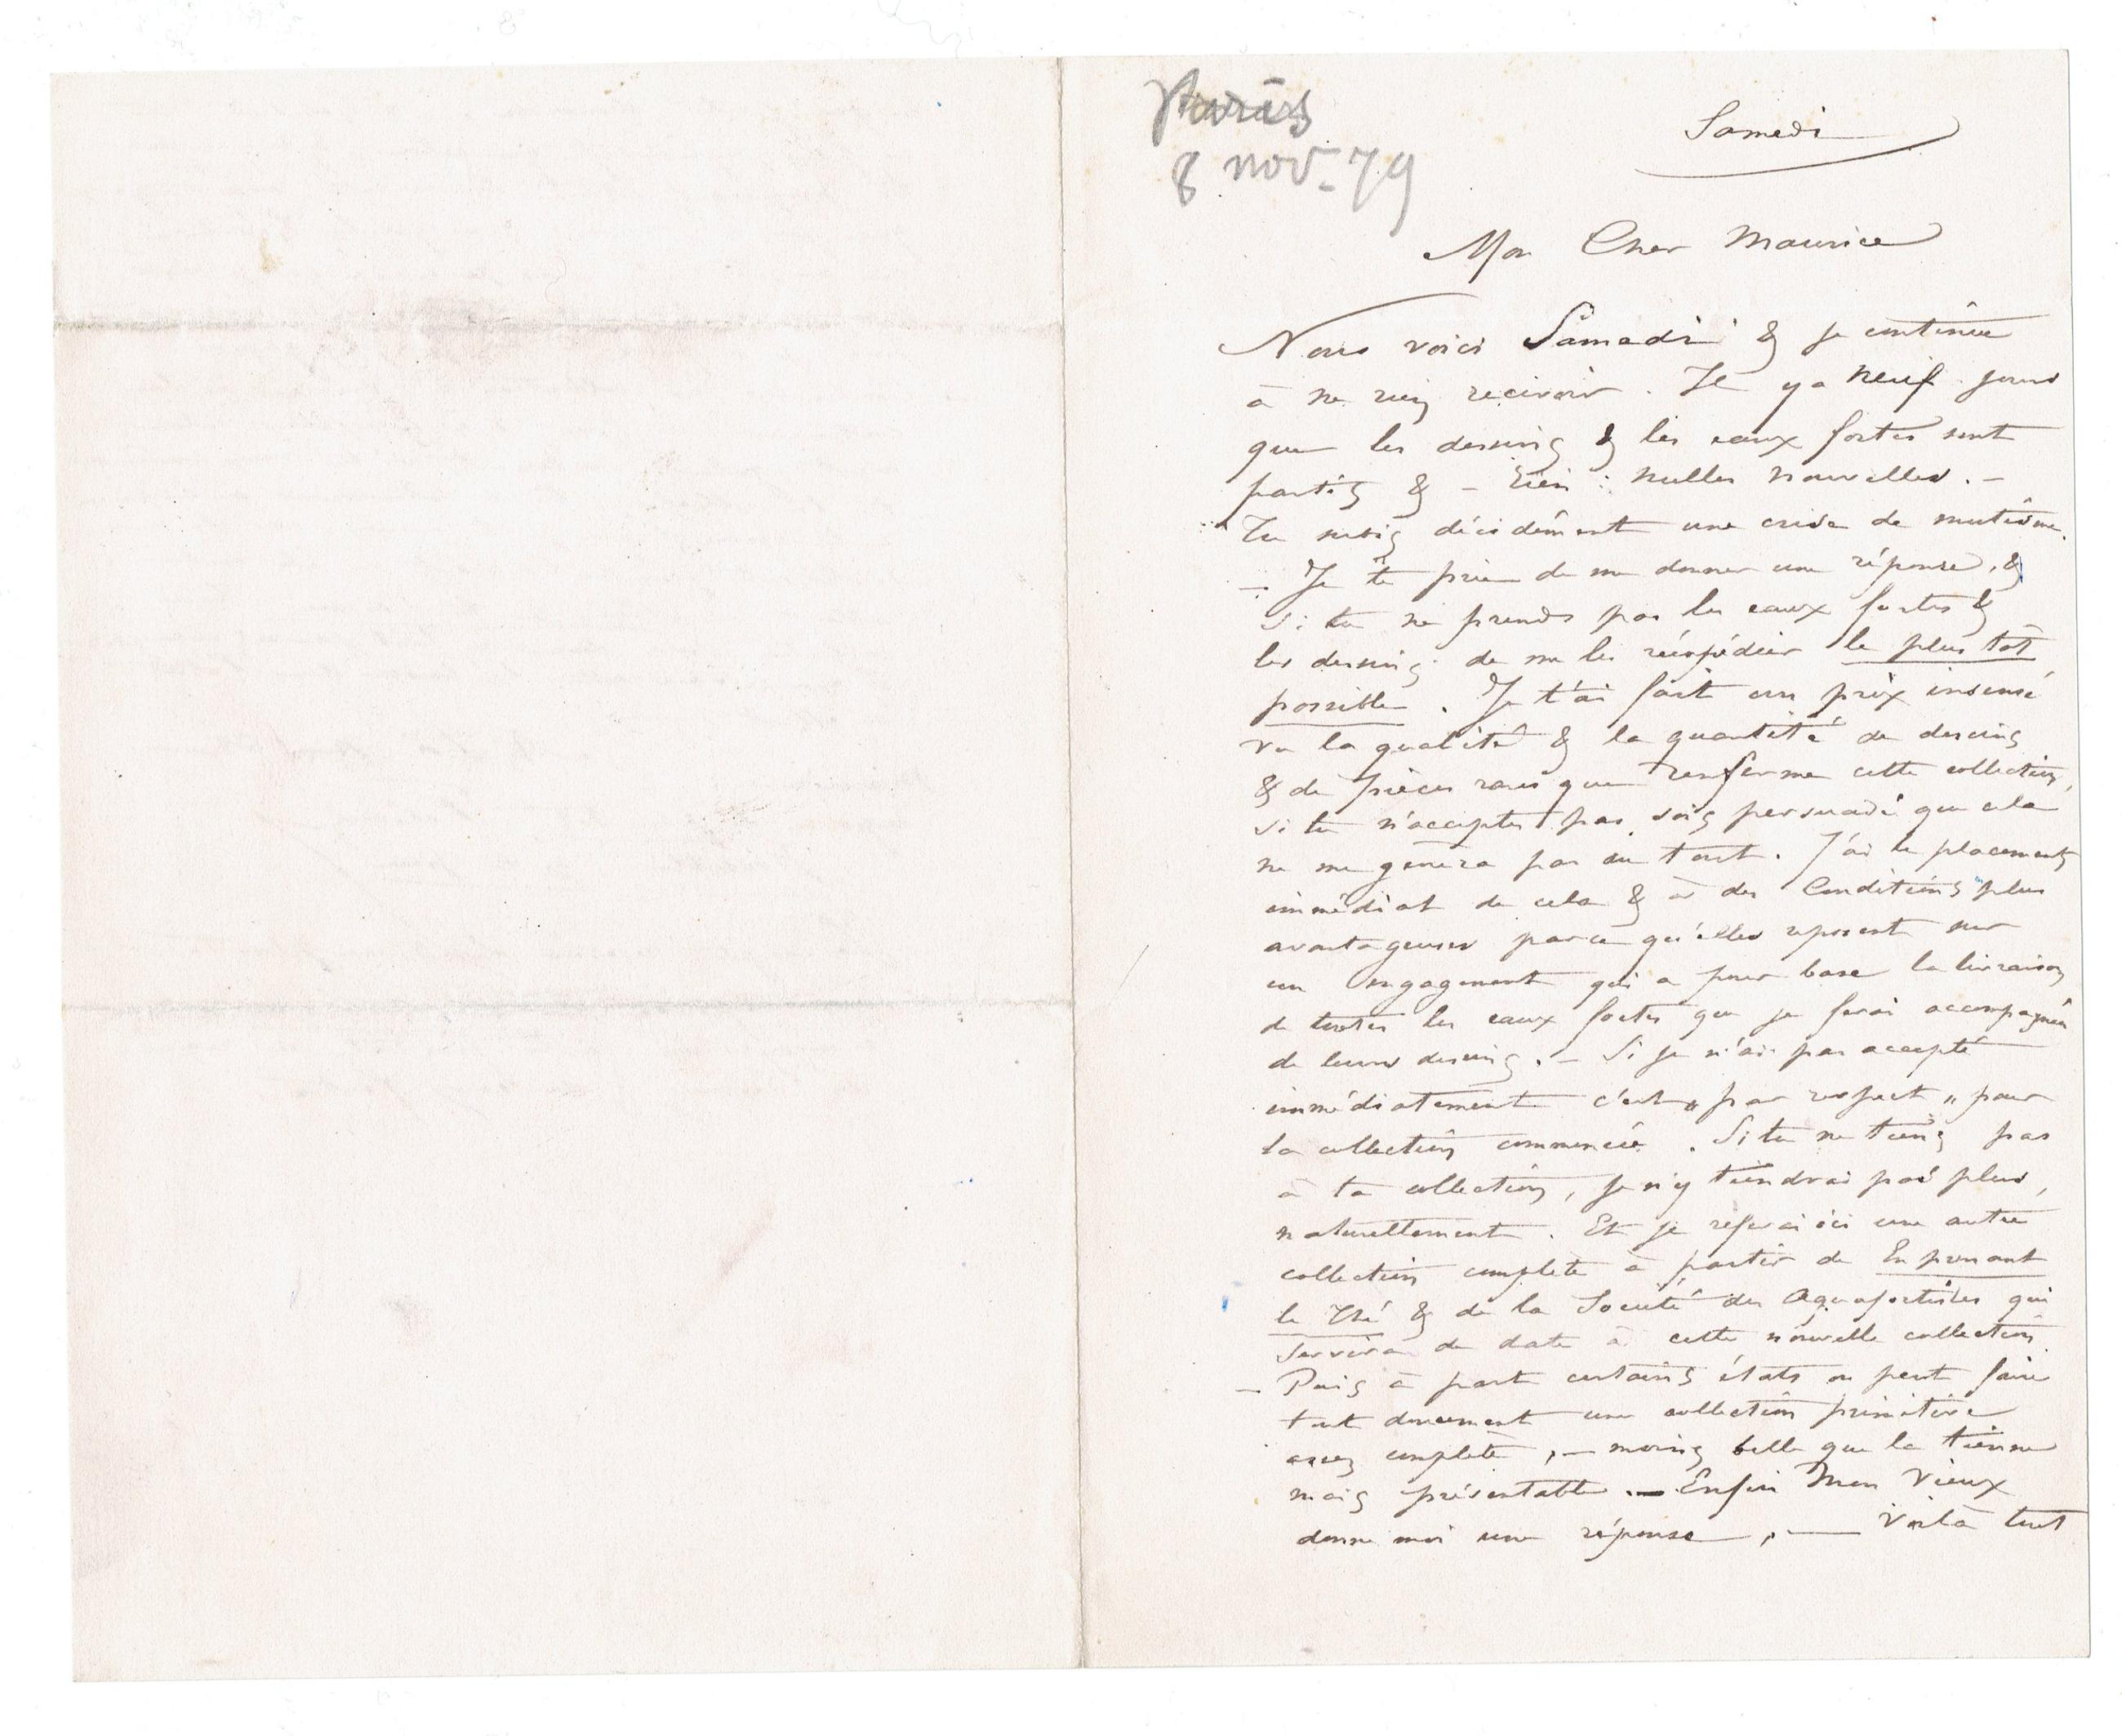 Paris
8 nov. 79
Samedi
Mon Cher Maurice
Nous voici Samedi & je continue
à ne rien recevoir. Il y a neuf jours
que les dessins & les eaux fortes sont
partis & – Rien : nulles nouvelles. –
Tu subis décidément une crise de mutisme.
– Je te prie de me donner une réponse, &
si tu ne prends pas les eaux fortes &
les dessins de me les réexpédier le plus tôt
possible. Je t'ai fait un prix insensé
vu la qualité & la quantité de dessins
& de pièces rares que renferme cette collection,
si tu n'acceptes pas, sois persuadé que cela
ne me gênera pas du tout. J'ai le placement
immédiat de cela & à des Conditions plus
avantageuses parce qu'elles reposent sur
un engagement qui a pour base la livraison
de toutes les eaux fortes que je ferai accompagnées
de leurs dessins. – Si je n'ai pas accepté
immédiatement c'est „ par respect „ pour
la collection commencée. Si tu ne tiens pas
à ta collection, je n'y tiendrai pas plus,
naturellement. Et je referai ici une autre
collection complète à partir de En prenant
le Thé & de la Société des Aquafortistes qui
servira de date à cette nouvelle collection.
– Puis à part certains états on peut faire
tout doucement une collection primitive
assez complète, – moins belle que la tienne
mais présentable. – Enfin Mon Vieux
donne moi une réponse, — voilà tout